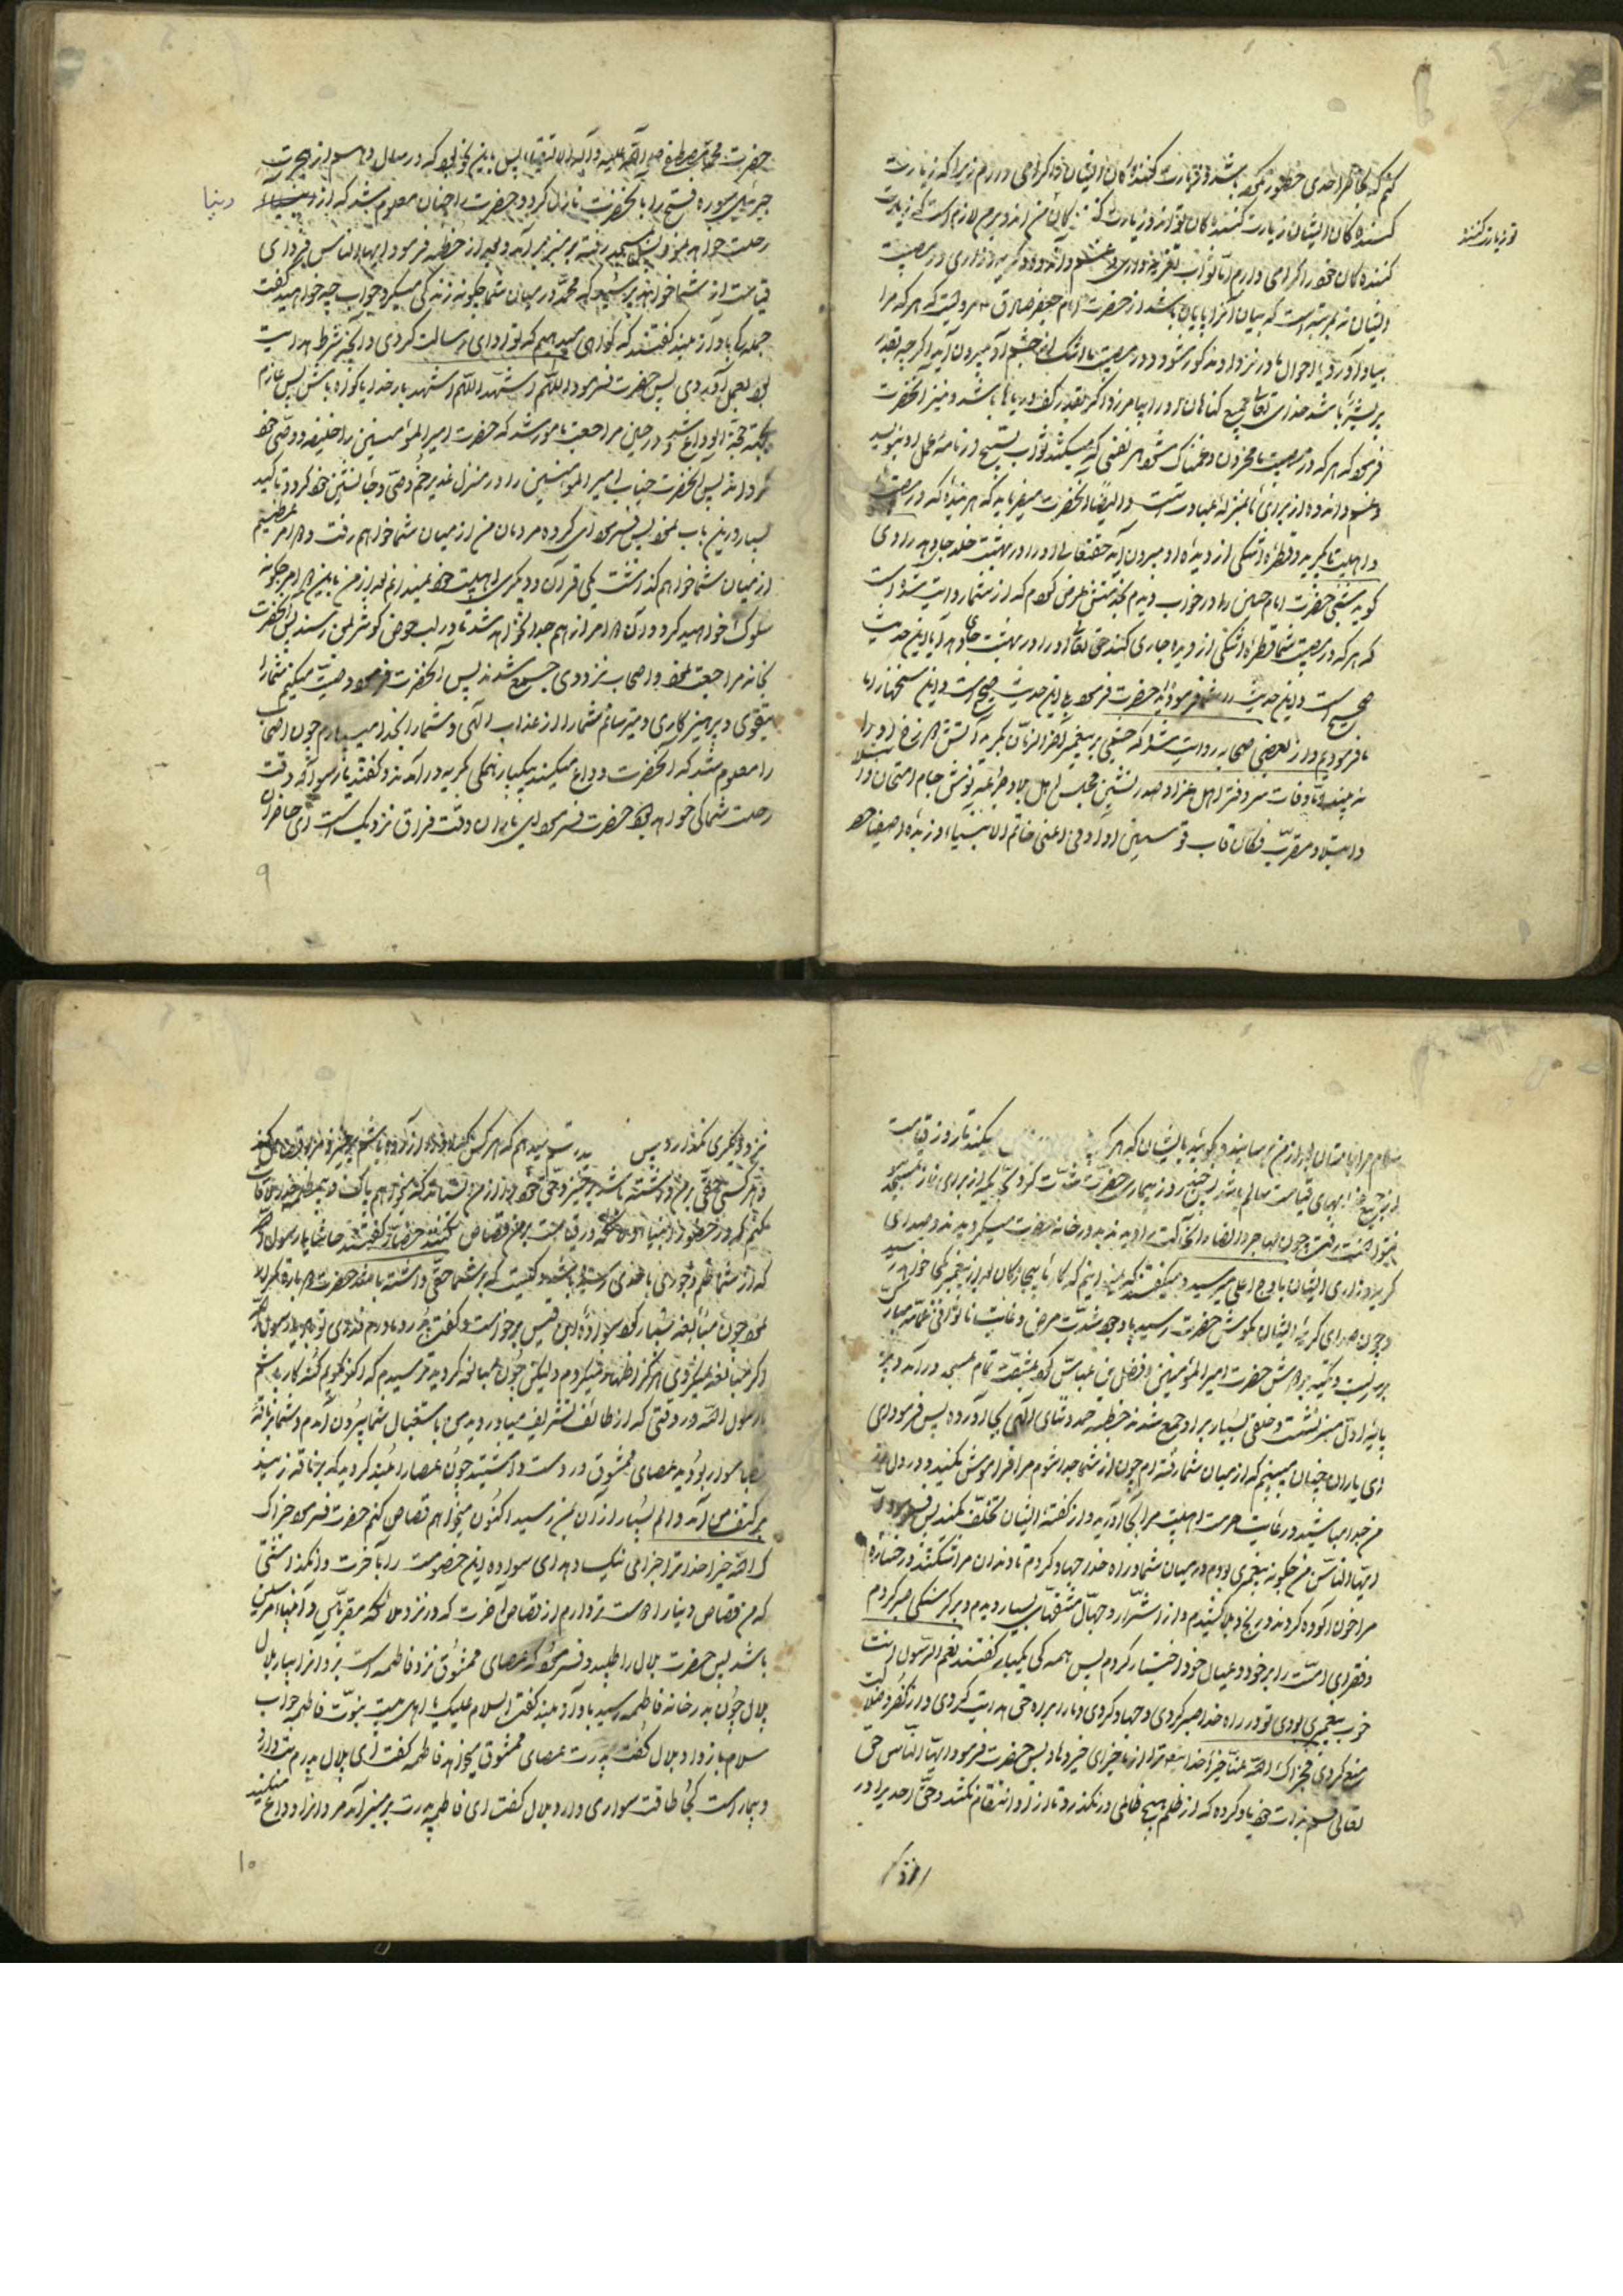 کنم که بخاطر احدی خطور نکرده باشد و زیارت کنندگان ایشان را گرامی دارم زیرا که زیارت
کنندگان ایشان زیارت کنندگان تواند و زیارت کنندگان من اند و بر من لازم است که زیارت
تو زیارت کنند
کنندگان خود را گرامی دارم اما ثواب تعزیه و گریه و زاری در مصیبت
ایشان نه بمرتبه است که بیان آنرا پایان باشد از حضرت امام جعفر صادق مرویست که هر که مرا
بیاد آورد یا احوال ما در نزد او مذکور شود و در مصیبت ما اشک از چشم او بیرون آید اگر چه بقدر
پر پشه باشد خدای تعالی جمیع گناهان او را بیامرزد اگر بقدر کف دریاها باشد و نیز آنحضرت
فرمود که هر که در مصیبت ما محزون و غمناک شود هر نفسی که میکشد ثواب تسبیح در نامه عمل او بنویسد
و غم و اندوه از برای ما بمنزله عبادتست و ایضا آنحضرت میفرماید که هر بنده که در مصیبت
ما اهلبیت بگرید و قطره اشکی از دیده او بیرون آید حقتعالی او را در بهشت خلد جا دهد راوی
گوید شبی حضرت امام حسین را در خواب دیدم بخدمتش عرض کردم که از شما روایت شده است
که هر که در مصیبت شما قطره اشکی از دیده جاری کند حق تعالی او را در بهشت جای دهد آیا این حدیث
صحیح است و این حدیث را شما فرموده اید حضرت فرمود یا این حدیث صحیح است و این سخنها را ما
فرمودیم و از بعضی صحابه روایت شده که چشمی بر پیغمبر آخرالزمان بگرید آتش دوزخ او را
نه بیند اما وفات سر دفتر اهل عزا و صدرنشین مجلس اهل بلا و جرعه نوش جام امتحان و ابتلا
و ابتلا و مقرب مکان قاب قوسین او ادنی اعنی خاتم الانبیاء و زبده اصفیا
حضرت محمد مصطفی صلی الله علیه و آله پس باین نحو بود که در سال دهم از هجرت
جبرئیل سوره فتح را بآنحضرت نازل کرد و حضرت را چنان معلوم شد که از دنیا
دنیا
رحلت خواهد نمود پس بمسجد رفته بر منبر بر آمد و بعد از خطبه فرمود ایهاالناس فردای
قیامت از شما خواهند پرسید که محمد در میان شما چگونه زندگی میکرد جواب چه خواهید گفت
جمله یکبار باواز بلند گفتند که گواهی میدهیم که تو ادای رسالت کردی و آنچه شرط هدایت
بود بعمل آوردی پس حضرت فرمود اللهم اشهد اللهم اشهد بار خدایا گواه باش پس عازم
مکه حجة الوداع شد و در حین مراجعت مامور شد که حضرت امیرالمؤمنین را خلیفه و وصی خود
گرداند پس آنحضرت جناب امیرالمؤمنین را در منزل غدیر خم وصی و جانشین خود کرد و تاکید
بسیار در این باب نمود پس فرمود ای گروه مردمان من از میان شما خواهم رفت و دو امر عظیم
از میان شما خواهم گذاشت یکی قرآن و دیگری اهلبیت خود نمیدانم بعد از من باین دو امر چگونه
سلوک خواهید کرد و آن دو امر از هم جدا نخواهد شد تا در لب حوض کوثر بمن رسند پس آنحضرت
بخانه مراجعت نمود و اصحاب نزد وی جمع شدند پس آنحضرت فرمود وصیت میکنم شما را
بتقوی و پرهیزکاری و میترسانم شما را از عذاب الهی و شما را بخدا میسپارم چون اصحاب
را معلوم شد که آنحضرت وداع میکند بیکبار همگی بگریه در آمدند و گفتند یا رسول الله وقت
رحلت شما کی خواهد بود حضرت فرمود ای یاران وقت فراق نزدیک است ای حاضران
۹
سلام مرا بامتان بعد از من برسانید و بگوئید بایشان که هر که میکند تا روز قیامت
پس چند روز بیماری حضرت شدت کرد بحدیکه از برای نماز بمسجد
نتوانست رفت چون مهاجر و انصار آنحالت را دیدند بدر خانه حضرت میگردیدند و صدای
گریه و زاری ایشان باوج اعلی میرسید و میگفتند که نمیدانیم که کار ما بیچارگان بعد از پیغمبر بکجا خواهد رسید
و چون صدای گریه ایشان بگوش حضرت رسید با وجود شدت مرض و غایت ناتوانی عمامه مبارک
بر سر بست و تکیه بر دوش حضرت امیرالمؤمنین و فضل بن عباس کرد بمشقت تمام بمسجد در آمد و بر
پایه اول منبر نشست و خلقی بسیار بر او جمع شدند خطبه حمد و ثنای الهی بجا آورده پس فرمود ای
ای یاران چنان میبینم که از میان شما رفته ام چون از شما جدا شوم مرا فراموش نکنید و در دل از
من جدا مباشید و رعایت حرمت اهلبیت مرا بجا آورید و از گفته ایشان تخلف نکنید پس فرمود
ایها الناس من چگونه پیغمبری بودم در میان شما و در راه خدا جهاد کردم تا دندان مرا شکستند و رخساره
مرا خون آلوده کردند و رنج و بلا کشیدم و از اشرار و جهال مشقتهای بسیار دیدم و بر گرسنگی صبر کردم
و فقرای امت را بر خود و عیال خود اختیار کردم پس همه کی بیکبار گفتند نعم الرسول انت
خوب پیغمبری بودی تو در راه خدا صبر کردی و جهاد کردی و ما را براه حق هدایت کردی و از کفر و ضلالت
منع کردی فجزاک الله عنا خیرا خدا ترا از ما جزای خیر دهاد پس حضرت فرمود ایها الناس حق
تعالی قسم بذات خود یاد کرده که از ظلم هیچ ظالمی در نگذرد تا از او انتقام نکشد و حق احدیرا در
نزد دیگری نگذارد پس میدهم که هر کس را از من آزرده باشم برخیزد و مرا قصاص کند
و هر کسی حقی بر من داشته باشد برخیزد و حق خود را از من بستاند که میخواهم پاک و مطهر خدا را ملاقات
کنم که در حضور انبیا و ملائکه در قیامت بر من قصاص کنند حضار گفتند حاشا یا رسول الله
که از شما ظلم و جوری باحدی رسیده باشد و کیست که بر شما حقی داشته باشد حضرت دوباره مکرر
نمود چون مبالغه بسیار کرد سوادة ابن قیس برخواست و گفت پدر و مادرم فدوی تو باد یا رسول الله
اگر مبالغه نمیفرمودی هرگز اظهار نمیکردم و لیکن چون مبالغه کردید ترسیدم که اگر نگویم گنه کار باشم
یا رسول الله در وقتی که از طائف تشریف میاوردید من باستقبال شما بیرون آمدم و شما بر ناقه
عضبا سوار بودید عصای ممشوق در دست داشتید چون عصا را بلند کردید که بر ناقه زنید
بر کتف من آمد و الم بسیار از آن بمن رسید اکنون میخواهم قصاص کنم حضرت فرمود جزاک
الله خیرا خدا ترا جزای نیک دهد ای سواده این خصومت را بآخرت وا نگذاشتی
که من قصاص دنیا را دوست تر دارم از قصاص آخرت که در نزد ملائکه مقربین و انبیاء مرسلین
باشد پس حضرت بلال را طلبید و فرمود که عصای ممشوق نزد فاطمه است برو آنرا بیار بلال
بلال چون بدر خانه فاطمه رسید باواز بلند گفت السلام علیک یا اهل بیت نبوت فاطمه جواب
سلام باز داد بلال گفت پدرت عصای ممشوق میخواهد فاطمه گفت ای بلال پدرم تب دارد
و بیمار است کجا طاقت سواری دارد بلال گفت ای فاطمه پدرت بر منبر آمد مردمانرا وداع میکند
۱۰